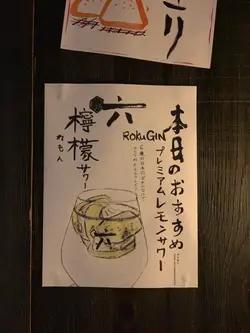 にり
本日のおすすめ
プレミアムレモンサワー
六
ROKU GIN
檸檬サワー
れもん
六